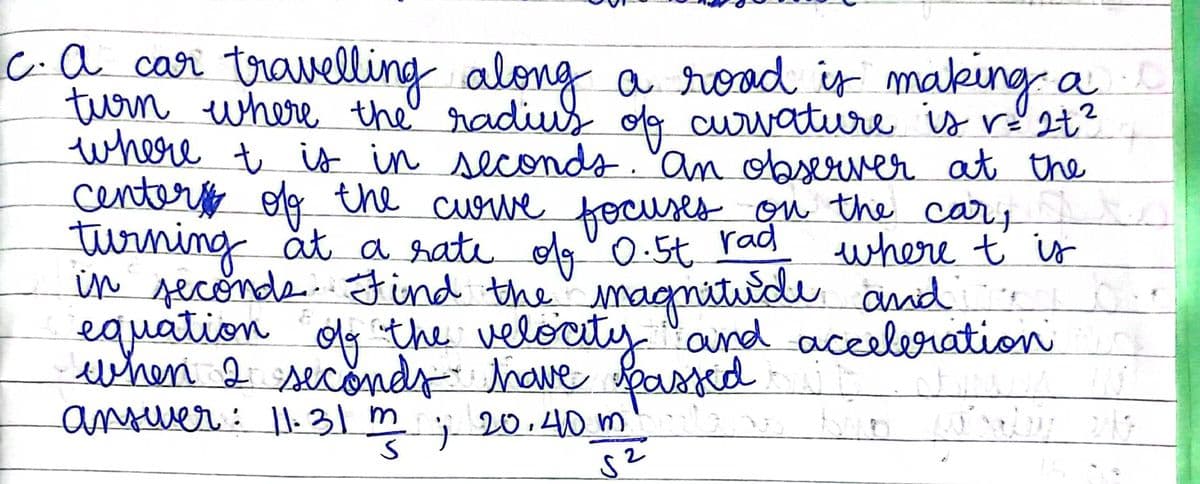 c. A car travelling along a road is making a
turn where the radius of curvature is r = 2t²
where t is in seconds. An observer at the
center of the curve focuses on the car,
turning at a rate of 0.5t rad/s where t is
in seconds. Find the magnitude and
equation of the velocity and acceleration
when 2 seconds have passed
answer: 11.31 m/s ; 20.40 m/s²